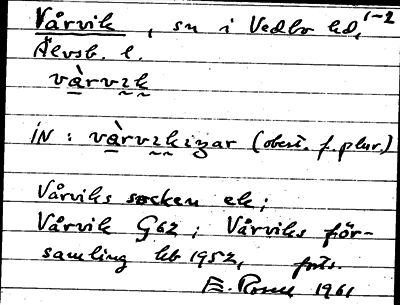 Vårvik, sn i Vedbo hd, 1-2
Älvsb. l.
vàrvɪk
IN: vàrvɪkɪzar (obest. f. plur.)
Vårviks socken ek;
Vårvik G62; Vårviks för-
samling kb 1952, forts.
E. Rosell 1961